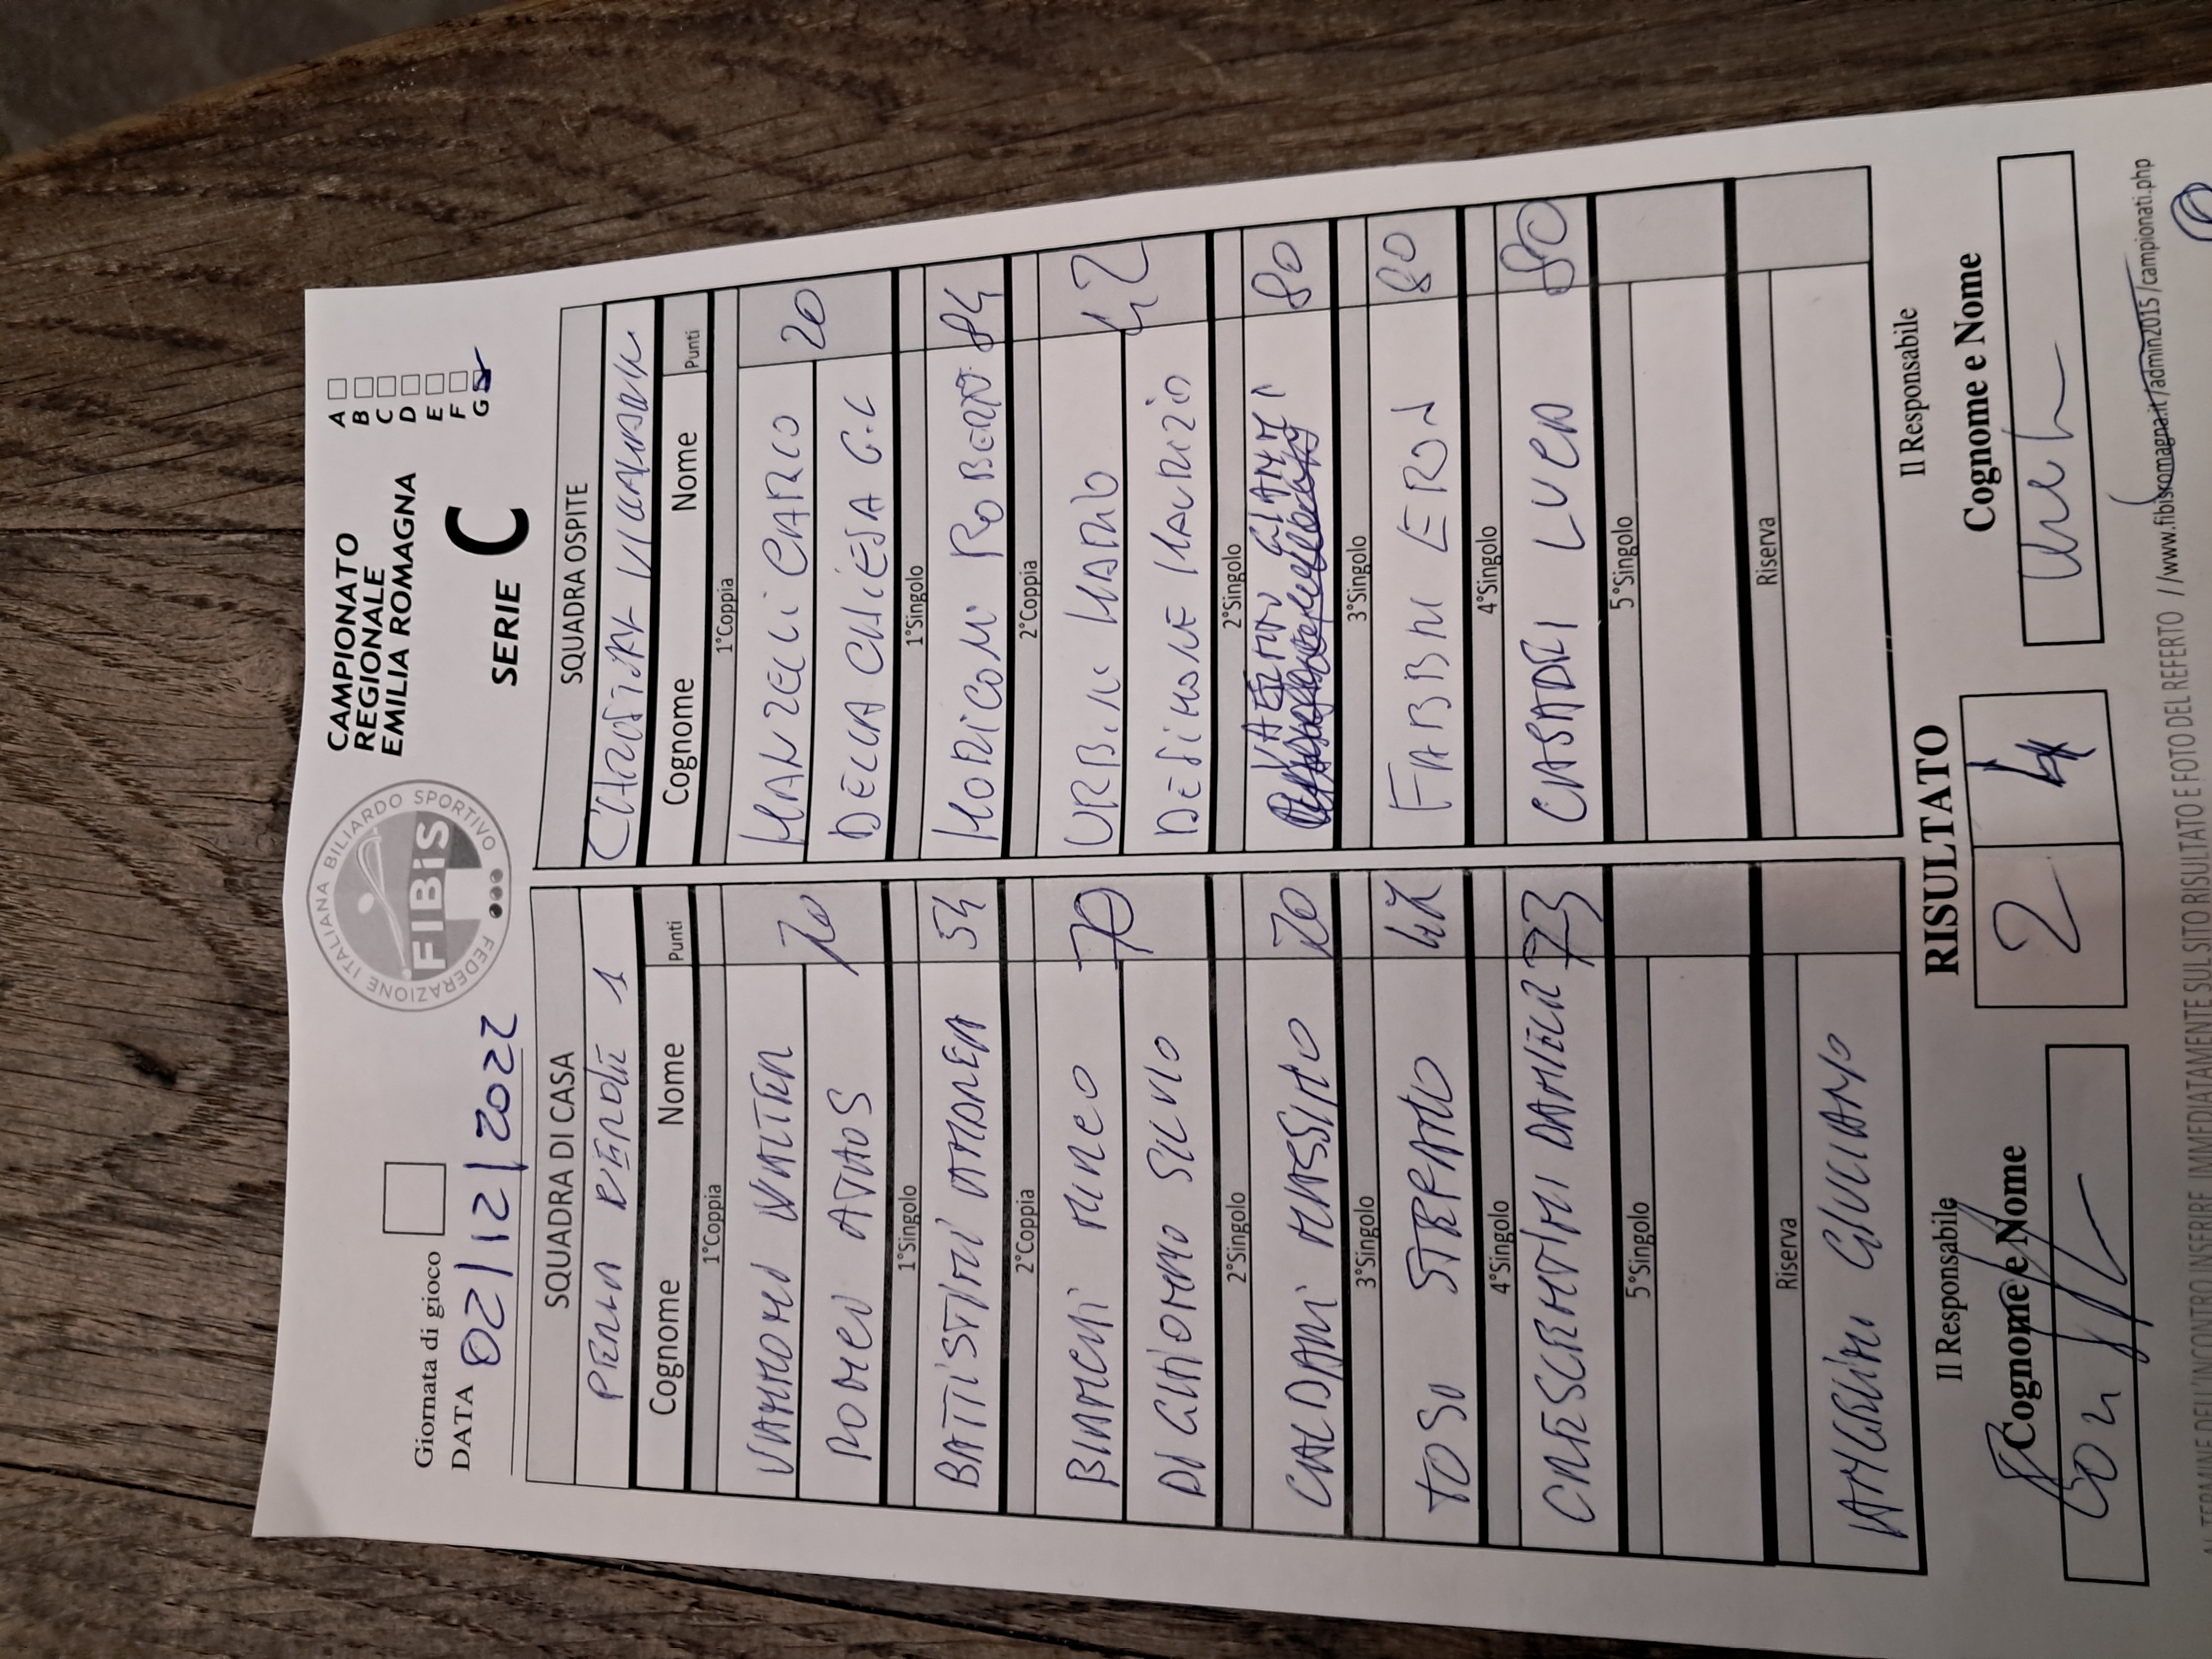 Giornata di gioco
DATA 02/12/2022
FEDERAZIONE ITALIANA BILIARDO SPORTIVO
FIBiS
CAMPIONATO
REGIONALE
EMILIA ROMAGNA
SERIE C
A
B
C
D
E
F
G
SQUADRA DI CASA
PERLA VERDE 1
Cognome Nome Punti
1°Coppia
WALTER 70
ROMEO ATHOS
1°Singolo
BATTISTINI ANDREA 54
2°Coppia
BIANCHI MIRCO 70
DI GIROMMO SILVIO
2°Singolo
CALDARI MASSIMO 70
3°Singolo
TOSI STEFANO
4°Singolo
CRESCENTINI DANIELA 73
5°Singolo
Riserva
GIULIANO
SQUADRA OSPITE
Cognome Nome Punti
1°Coppia
MANZELLI CARLO 20
DELLA CHIESA G.C
1°Singolo
MORICONI ROBERTO 84
2°Coppia
URBINI MARIO 42
DESIMONE MAURIZIO
2°Singolo
VALERIO GIANNI 80
3°Singolo
FABBRI EROS 80
4°Singolo
CASADEI LUCA 80
5°Singolo
Riserva
Il Responsabile
Cognome e Nome
RISULTATO
2 4
Il Responsabile
Cognome e Nome
AL TERMINE DELL'INCONTRO INSERIRE IMMEDIATAMENTE SUL SITO RISULTATO E FOTO DEL REFERTO //www.fibisromagna.it/admin2015/campionati.php